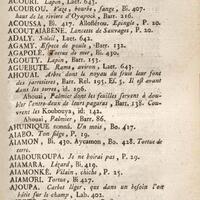 ACOURI. Lapin, Laet. 643.
ACOUROU. Vaze, bourbe, fange, Bi. 407.
haut de la riviere d'Oyapock, Barr. 216.
ACOUSSA, Bi. 417. Alloſſérou. Epingle, P. 20.
ACOUTAIABENE. Lancette de Sauvages, P. 20.
ADALY. Soleil, Laet. 642.
AGAMY. Eſpece de poule, Barr. 132.
AGAPOLÉ. Tortue de mer, Bi. 430.
AGOUTY. Lapin, Barr. 153.
AGUEBUTE. Rame, aviron, Laet. 643.
AHOUAI. Arbre dont le noyau du fruit leur font
des jarretieres, Barr. 195. Ex. 5. Il y avant
dans les terres, id. 196.
Ahouai, Palmier dont les feuilles ſervent à dou-
bler l'entre-deux de leurs pagaras, Barr. 138. Couvrent
les Koubouya, id. 142.
Ahouai, Palmier, Barr. 86.
AHUINIQUE nonna. Un mois, Bo. 417.
AIABO. Ton fiége, P. 19.
AIAMON, Bi. 430. Aycamon, Bo. 428. Tortue de
terre.
AIABOUROUPA. Je ne boirai pas, P. 29.
AIAMARA. Lézard, Bi. 419.
AIAMONKÉ. Vilain, chiche, P. 25.
AIAMORI. Tortue, Bi. 427.
AJOUPA. Carbet léger, que dans un beſoin l'on
bâtit ſur le champ, Lab. 402.